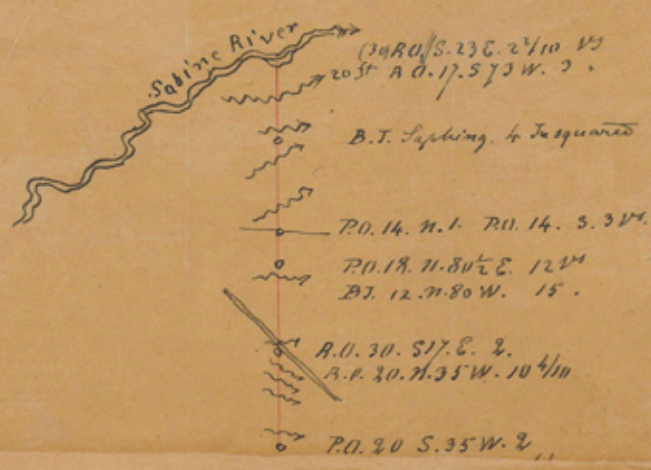 Sabine River
(30 R.O. S. 23 E. 2 2/10 vs
20 st R.O. 17. S 73 W. 3 "
B.J. Sapling. 4 In squared
P.O. 14. N. 1. P.O. 14. S. 3 vs.
P.O. 18. N. 80 1/2 E. 12 vs
BJ. 12. N. 80 W. 15 "
R.O. 30. S 17. E. 2.
R.O. 20. N. 35 W. 10 4/10
P.O. 20 S. 35 W. 2 "